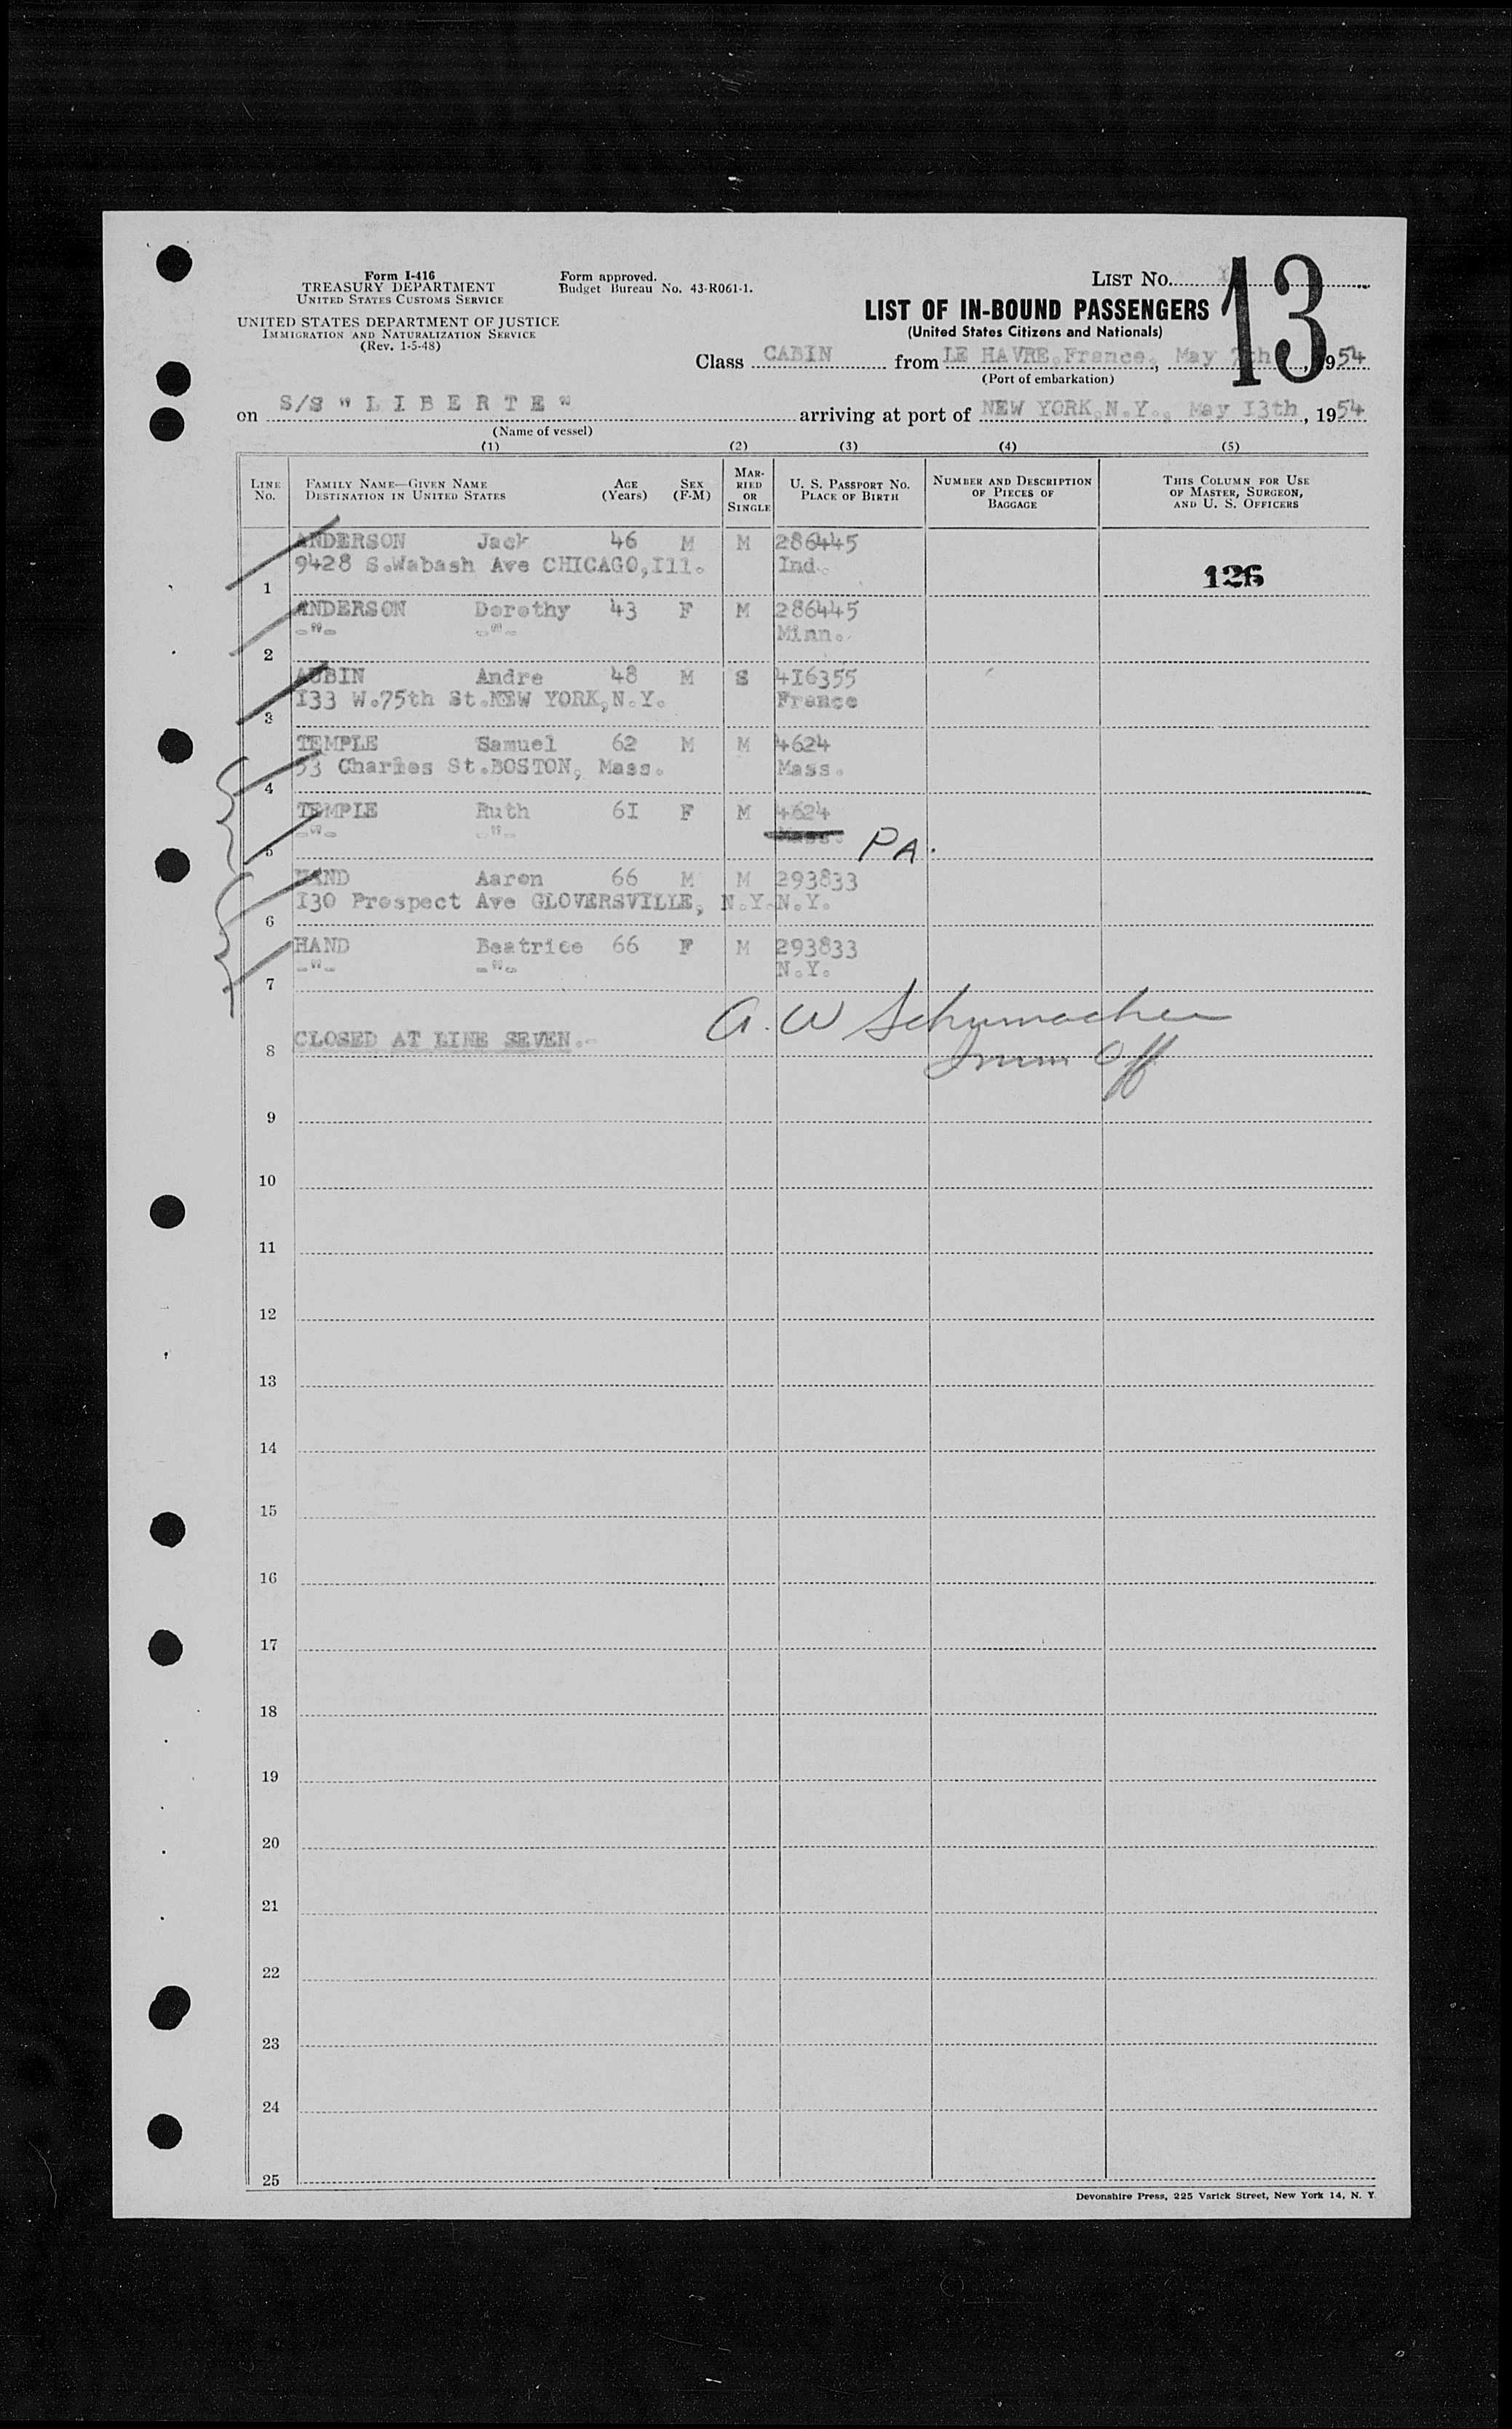 Form I-416
TREASURY DEPARTMENT
UNITED STATES CUSTOMS SERVICE
UNITED STATES DEPARTMENT OF JUSTICE
IMMIGRATION AND NATURALIZATION SERVICE
(Rev. 1-5-48)
Form approved.
Budget Bureau No. 43-R061-1.
LIST NO.
13
LIST OF IN-BOUND PASSENGERS
(United States Citizens and Nationals)
Class CABIN from LE HAVRE.France., May , 1954
(Port of embarkation)
on S/S " L I B E R T E " arriving at port of NEW YORK,N.Y., May 13th, 1954
(Name of vessel)
(1) (2) (3) (4) (5)
LINE No. FAMILY NAME—GIVEN NAME DESTINATION IN UNITED STATES AGE (Years) SEX (F-M) MARRIED OR SINGLE U. S. PASSPORT NO. PLACE OF BIRTH NUMBER AND DESCRIPTION OF PIECES OF BAGGAGE THIS COLUMN FOR USE OF MASTER, SURGEON, AND U. S. OFFICERS
ANDERSON Jack 46 M M 286445
9428 S.Wabash Ave CHICAGO,Ill. Ind.
1 126
ANDERSON Dorothy 43 F M 286445
-"- -"- Minn.
2
AUBIN Andre 48 M S 4I6355
I33 W.75th St.NEW YORK,N.Y. France
3
TEMPLE Samuel 62 M M 4624
53 Charles St.BOSTON, Mass. Mass.
4
TEMPLE Ruth 6I F M 4624
-"- -"- Mass. PA.
5
HAND Aaron 66 M M 293833
I30 Prospect Ave GLOVERSVILLE, N.Y. N.Y.
6
HAND Beatrice 66 F M 293833
-"- -"- N.Y.
7
A. W Schumacher
CLOSED AT LINE SEVEN.-
Imm Off
8
9
10
11
12
13
14
15
16
17
18
19
20
21
22
23
24
25
Devonshire Press, 225 Varick Street, New York 14, N. Y.